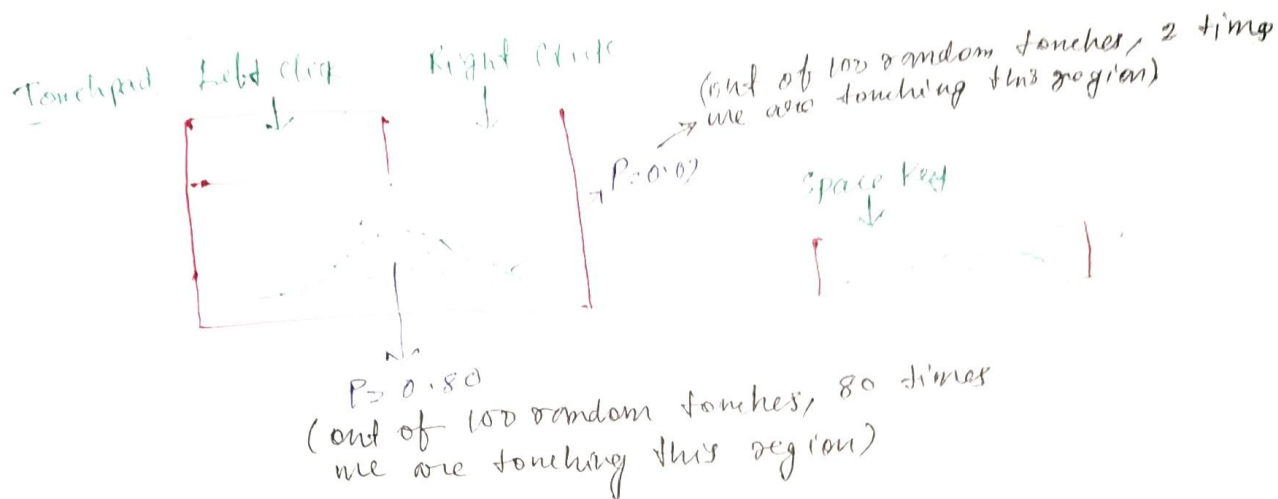 Touchpad Left click Right Click
(out of 100 random touches, 2 time
we are touching this region)
P=0.02
Space key
P=0.80
(out of 100 random touches, 80 times
we are touching this region)